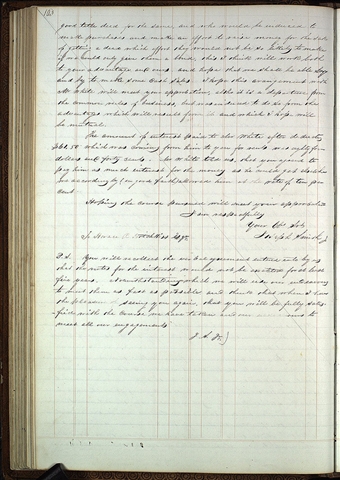 good title deed for the same and who would be induced to
make purchases and make an effort to raise money for the sake
of getting a deed which effort they would not be so likely to make
if we should only give them a bond, this I think will work both
to your advantage and ours and hope that we shall be able
and by to make some Cash Sales. I hope this arrangement with
Mr White will meet your approbation, altho it is a departure from
the common rules of business, but was induced to do so from the
advantage which will result from it and which I hope will
be mutual.
The amount of interest paid to Mr White after deducting
which was coming from him to you for was eighty four
dollars and forty cents. Mr White told us that you agreed to
pay him as much interest for the money as he could get elsewhere
we accordingly in good faith allowed him at the rate of ten per
cent
Hoping the course pursued will meet your approbation
I am respectfully
Your Obt Svt
Joseph
To Esqr
P.S. You will recollect the verbal agreement entered into by us
that the notes for the interest would not be exacted for at least
five years. Notwithstanding which we will use our endeavors
to meet them as fast as possible and think that when I have
the pleasure of seeing you again, that you will be fully satis-
fied with the course we have taken and our to
meet all our engagements
J. S. Jr